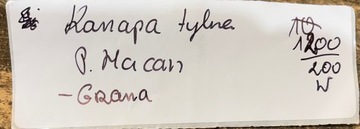 Kanapa tylna
P. Macan
- Grana
1200
200
W